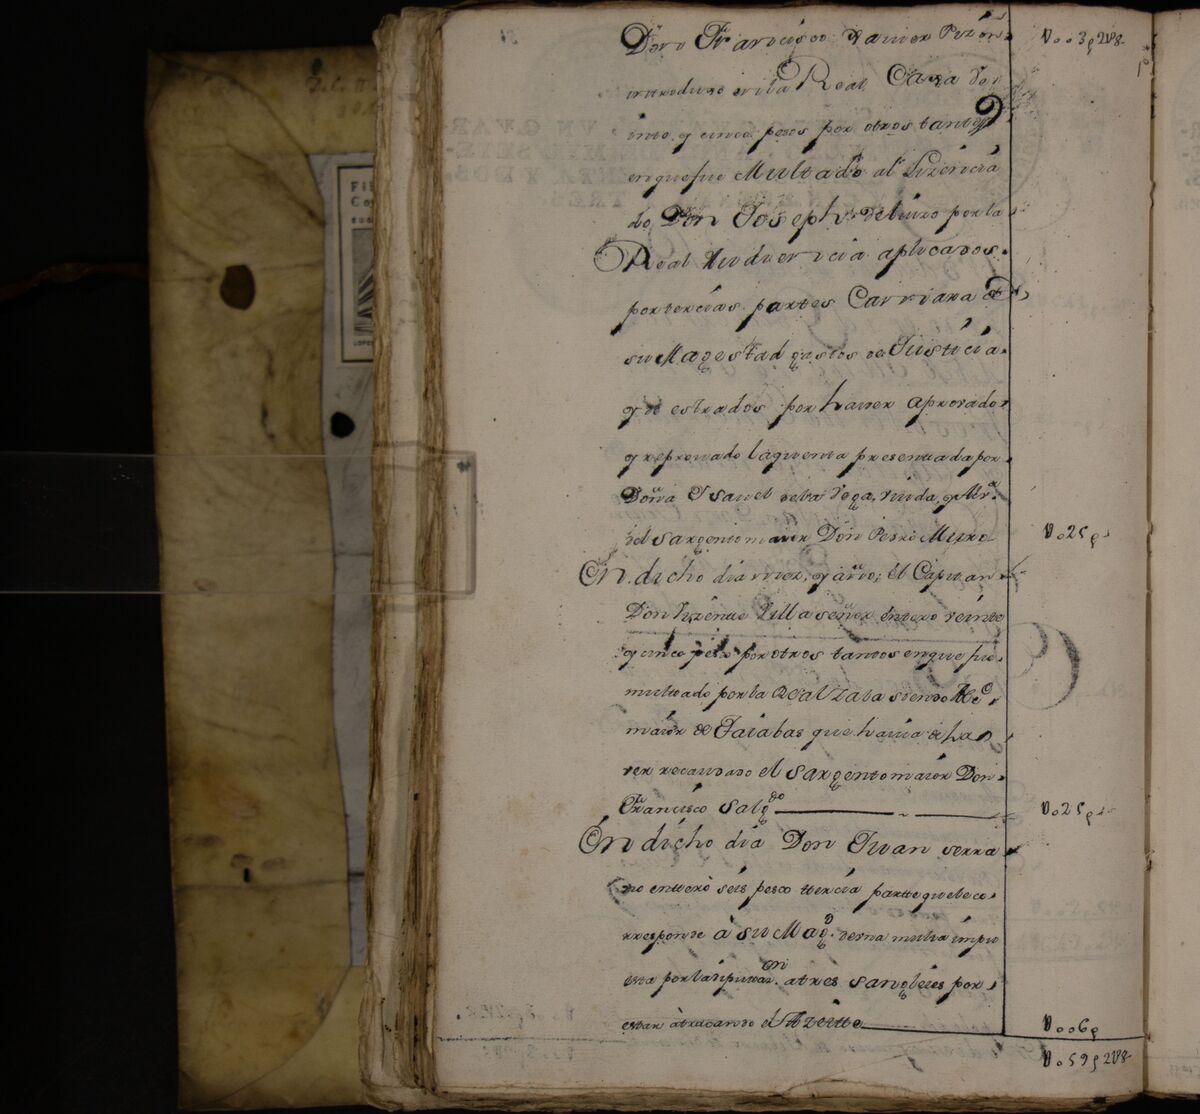 Don Francisco Xavier Pezon
introduxo en la Real Caxa ve
inte, y cinco pesos por otros tantos
en que fue Multado al Lizencia
do Don Joseph de Luzo por la
Real Audiencia aplicados
por tercias partes Carriaxa de
su Magestad gastos de Justicia
y de estrados por haver aprovado
y reprovado la quenta presentada por
Doña Isavel de la Vega, viuda, y Alv.ª
del sargento maior Don Pedro Muxo
En dicho dia mez, y año; el Capitan
Don Vizente Villa señor entero veinte
y cinco pesos por otros tantos en que fue
multado por la Real Zala siendo Alc.e
maior de Taiabas que havia de ha
ver recaudado el sargento maior Don
Francisco Salg.do
En dicho dia Don Juan serra
no enteró séis pesos tercia parte que le co
rresponde à su Mag.d de una multa impu
esta por la Diputacion a tres sangleies por
estar atracando el Azeitte
V003p2V8
V025p
V025p
V006p
V059p2V8